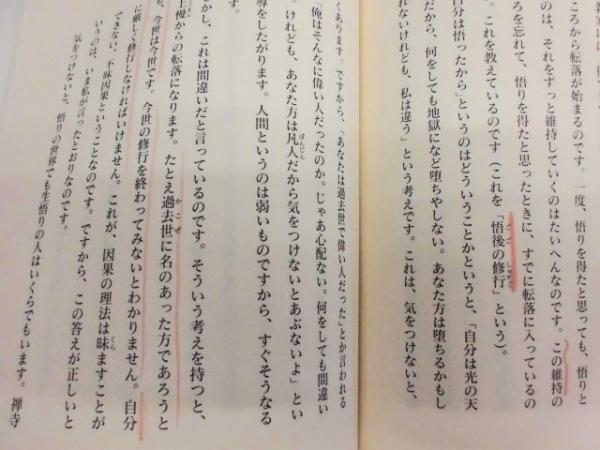 ころから転落が始まるのです。一度、悟りを得たと思っても、悟りと
のは、それをずっと維持していくのはたいへんなのです。この維持の
ろを忘れて、悟りを得たと思ったときに、すでに転落に入っているの
す。これを教えているのです（これを「悟後の修行」という）。
自分は悟ったから」というのはどういうことかというと、「自分は光の天
だから、何をしても地獄になど堕ちやしない。あなた方は堕ちるかもし
れないけれども、私は違う」という考えです。これは、気をつけないと、
くあります。ですから、「あなたは過去世で偉い人だった」とか言われる
「俺はそんなに偉い人だったのか。じゃあ心配ない。何をしても間違い
。けれども、あなた方は凡人だから気をつけないとあぶないよ」とい
導をしたがります。人間というのは弱いものですから、すぐそうなる
す。
かし、これは間違いだと言っているのです。そういう考えを持つと、
慢からの転落になります。たとえ過去世に名のあった方であろうと
、今世は今世です。今世の修行を終わってみないとわかりません。自分
に厳しく修行しなければいけません。これが、因果の理法は昧ますことが
できない、不昧因果ということなのです。ですから、この答えが正しいと
いうのは、いま私が言ったとおりなのです。
気をつけないと、悟りの世界でも生悟りの人はいくらでもいます。禅寺